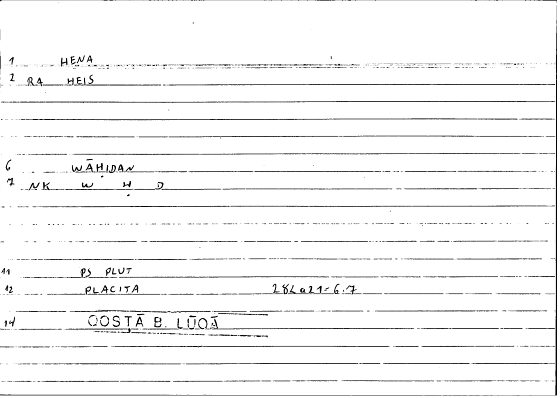 1 HENA
2 RA HEIS
6 WĀḤIDAN
7 NK W Ḥ D
11 PS PLUT
12 PLACITA 282a21-6.7
14 QOSṬĀ B. LŪQĀ